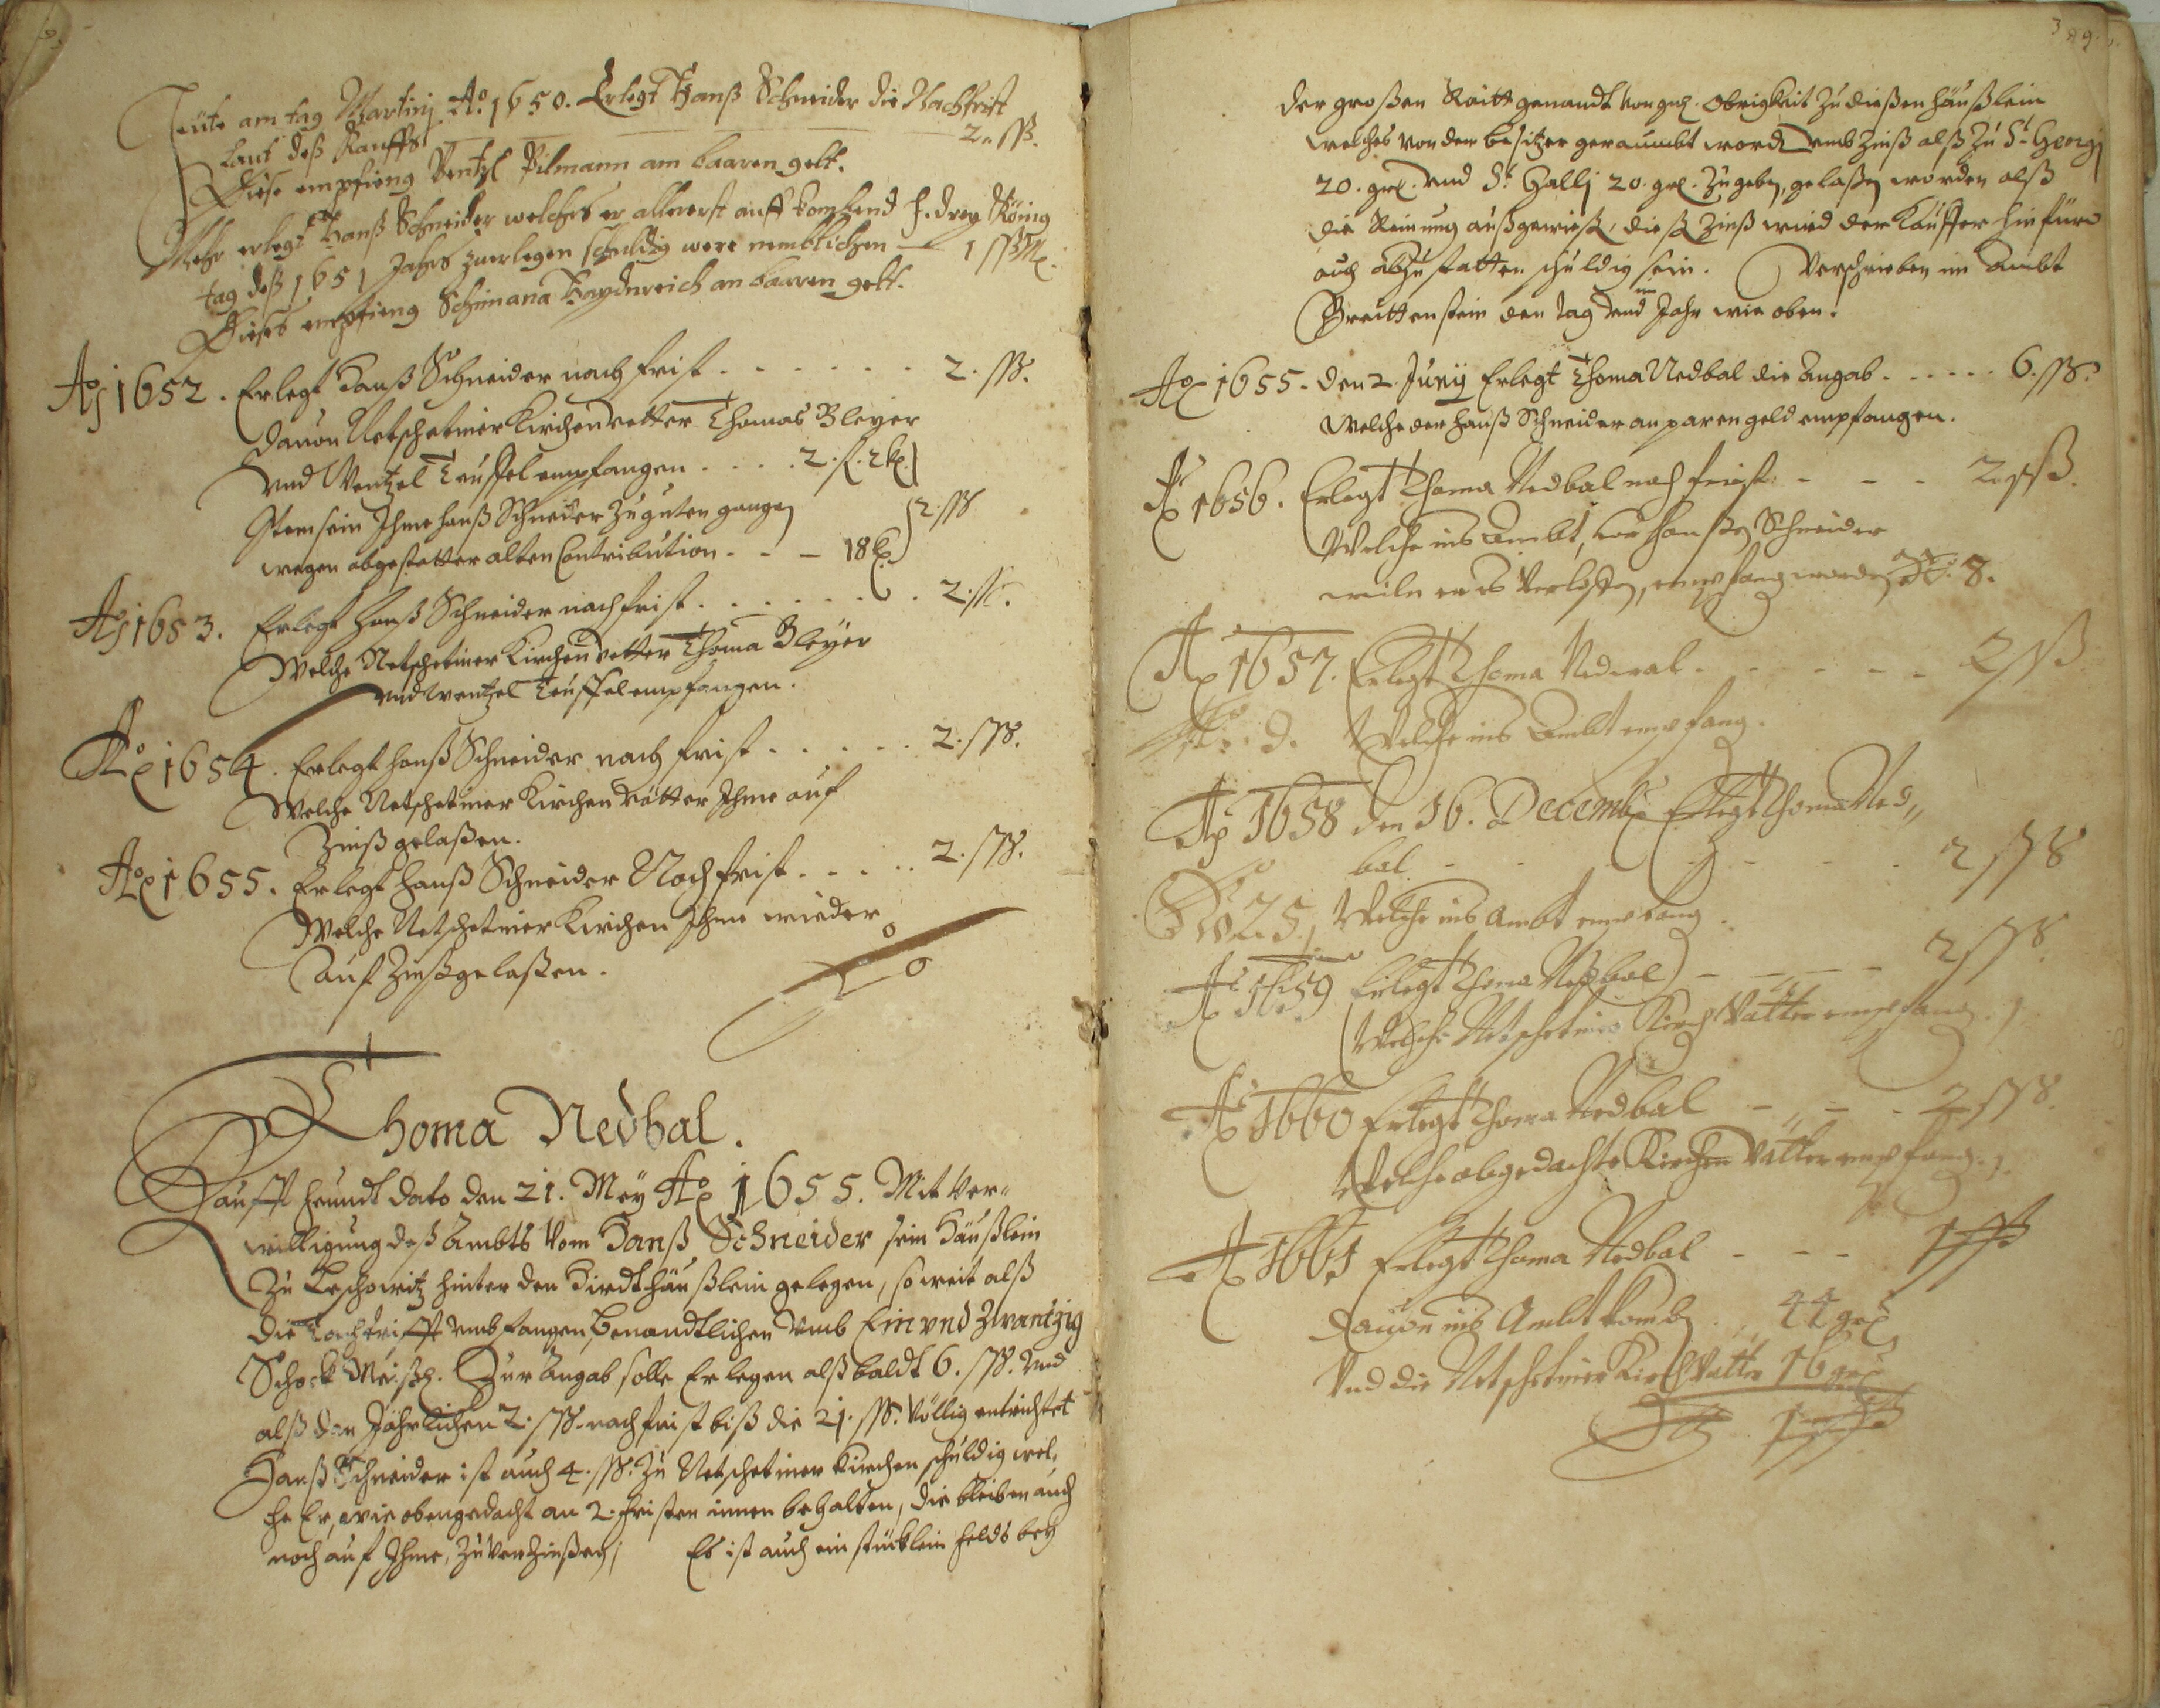 Heüte am tag Martinj Aō 1650. Erlegt Hanß Schneider die Nachfrist
laut deß Kauffs 2. ßß.
Diese empfieng Wentzl Pilmann am baaren gelt.
Mehr erlegt Hanß Schneider welches er allererst auff kombend h. drey König
tag deß 1651 Jahrs zuerlegen schuldig were nemblichen 1 ßß M.
Dieses empfieng Schimana Haydnreich an baaren gelt.
Aō 1652. Erlegt Hanß Schneider nach frist . . . . . . 2. ßß.
dauon Netschetiner Kirchenvetter Thomas Bleyer
vnd Wentzel Teuffel empfangen . . . . 2. f. 2 k.
Item sein Ihme Hanß Schneider Zu guten gangen
wegen abgestatter alten Contribution . . – 18 k. 2. ßß
Aō 1653. Erlegt Hanß Schneider nachfrist . . . . . . 2. ßß.
Welche Netschetiner Kirchenvetter Thoma Bleyer
vnd Wentzel Teuffel empfangen.
Aō 1654. Erlegt Hanß Schneider nach frist . . . . . 2. ßß.
Welche Netschetiner Kirchen Vätter Ihme auf
Zinß gelaßen.
Aō 1655. Erlegt Hanß Schneider Nachfrist . . . . . 2. ßß.
Welche Netschetiner Kirchen Ihme wieder
auf Zinß gelaßen.
Thoma Nedbal.
Kaufft heundt dato den 21. Meÿ Aō 1655. Mit Ver-
willigung deß Ambts Vom Hanß Schneider sein Häußlein
Zu Leschowitz hinter den Hirdthäußlein gelegen, so weit alß
die Tachtrifft vmbfangen, benandtlichen vmb Ein vnd Zwantzig
Schock Meißn. Zur Angab solle Erlegen alßbaldt 6. ßß. Vnd
alß dan Jährlichen 2. ßß. nachfrist biß die 21. ßß. Völlig entrichtet
Hanß Schneider ist auch 4. ßß. Zu Netschetiner Kirchen schuldig wel-
che Er, wie obengedacht an 2. fristen innen behalten, die bleiben auch
noch auf Ihme, Zu Verzinßen; Es ist auch ein stücklein felds beÿ
der großen Raitt genandt von gn. Obrigkeit Zu dießen häußlein
welches von dem besitzer geraumbt word. vmb Zinß alß Zu St. Georgj
20. gr. vnd St. Gallj 20. gr. Zu geben, gelaßen worden alß
die Reinung außgewießt, dieß Zinß wird der Kauffer hinfüro
auch abzustatten schuldig sein. Verschrieben im Ambt
Breittenstein den tag vnd im Jahr wie oben.
Aō 1655. den 2. Junÿ Erlegt Thoma Nedbal die Angab . . . . . 6. ßß.
Welche der Hanß Schneider an paren geld empfangen.
Aō 1656. Erlegt Thoma Nedbal nach frist . – – – 2 ßß.
Welche ins Ambt, von Hanßen Schneider
weiln er es Verlaßen, empfang. worden No. 8.
Aō 1657. Erlegt Thoma Nedwal . – – – – – 2 ßß
Welche ins Ambt empfang.
Aō 1658 den 16. Decemb. Erlegt Thoma Ned-
bal – – – – – 2 ßß
No 25, Welche ins Ambt empfang.
Aō 1659 Erlegt Thoma Nedbal – – – – 2 ßß.
Welche Netschetiner KirchVätter empfang.
Aō 1660 Erlegt Thoma Nedbal – – – 2 ßß.
Welche obgedachte Kirchen Vätter empfang.
Aō 1661 Erlegt Thoma Nedbal – – – 1 ßß
dauon ins Ambt komb. 44 gr.
Vnd die Netschetiner KirchVätter 16 gr.
1 ßß